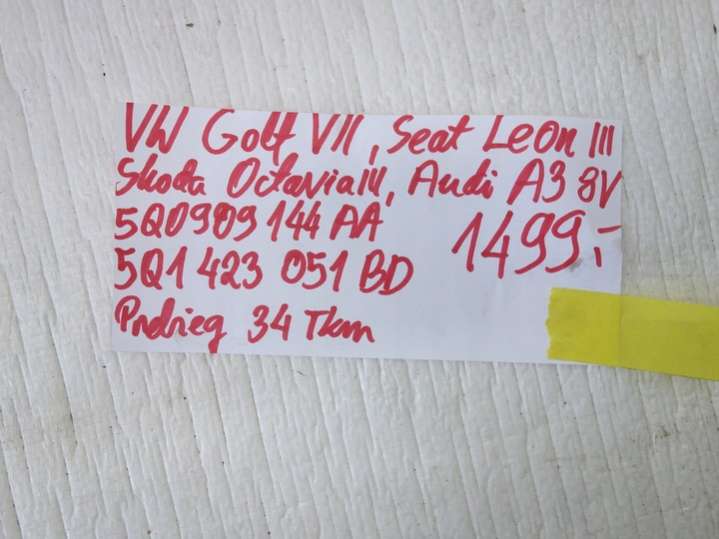 VW Golf VII, Seat Leon III
Skoda Octavia III, Audi A3 8V
5Q0909144AA
1499,-
5Q1 423 051 BD
Prebieg 34 Tkm